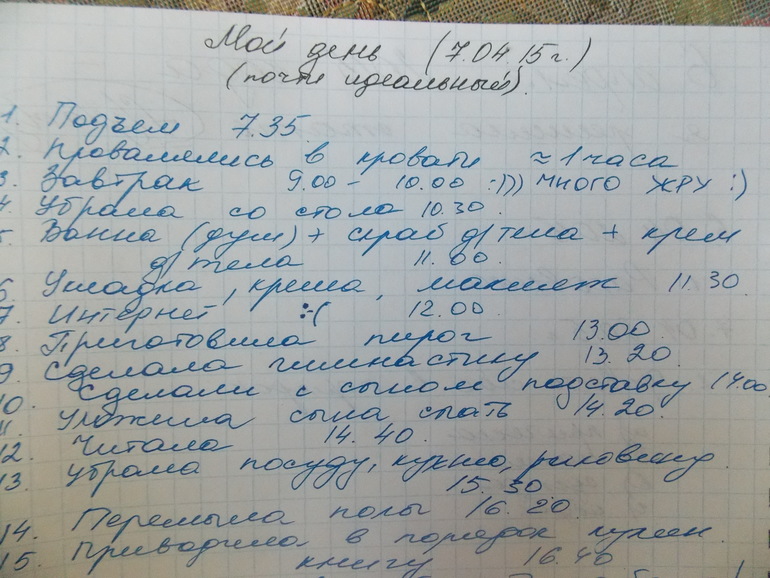 Мой день (7.04.15г.)
(почти идеальный).
1. Подъем 7.35
2. Провалялись в кровати ≈ 1 часа
3. Завтрак 9.00 - 10.00 :))) много жру :)
4. Убрала со стола 10.30.
5. Ванна (душ) + скраб д/тела + крем
д/тела 11.00.
6. Укладка, крема, макияж 11.30
7. Интернет :-( 12.00
8. Приготовила пирог 13.00
9. Сделала гимнастику 13.20.
10. Сделали с сыном подставку 14.00
11. Уложила сына спать 14.20.
12. Читала 14.40.
13. Убрала посуду, кухню, раковину.
15.30.
14. Перемыла полы 16.20
15. Приводила в порядок кулин.
книгу 16.40